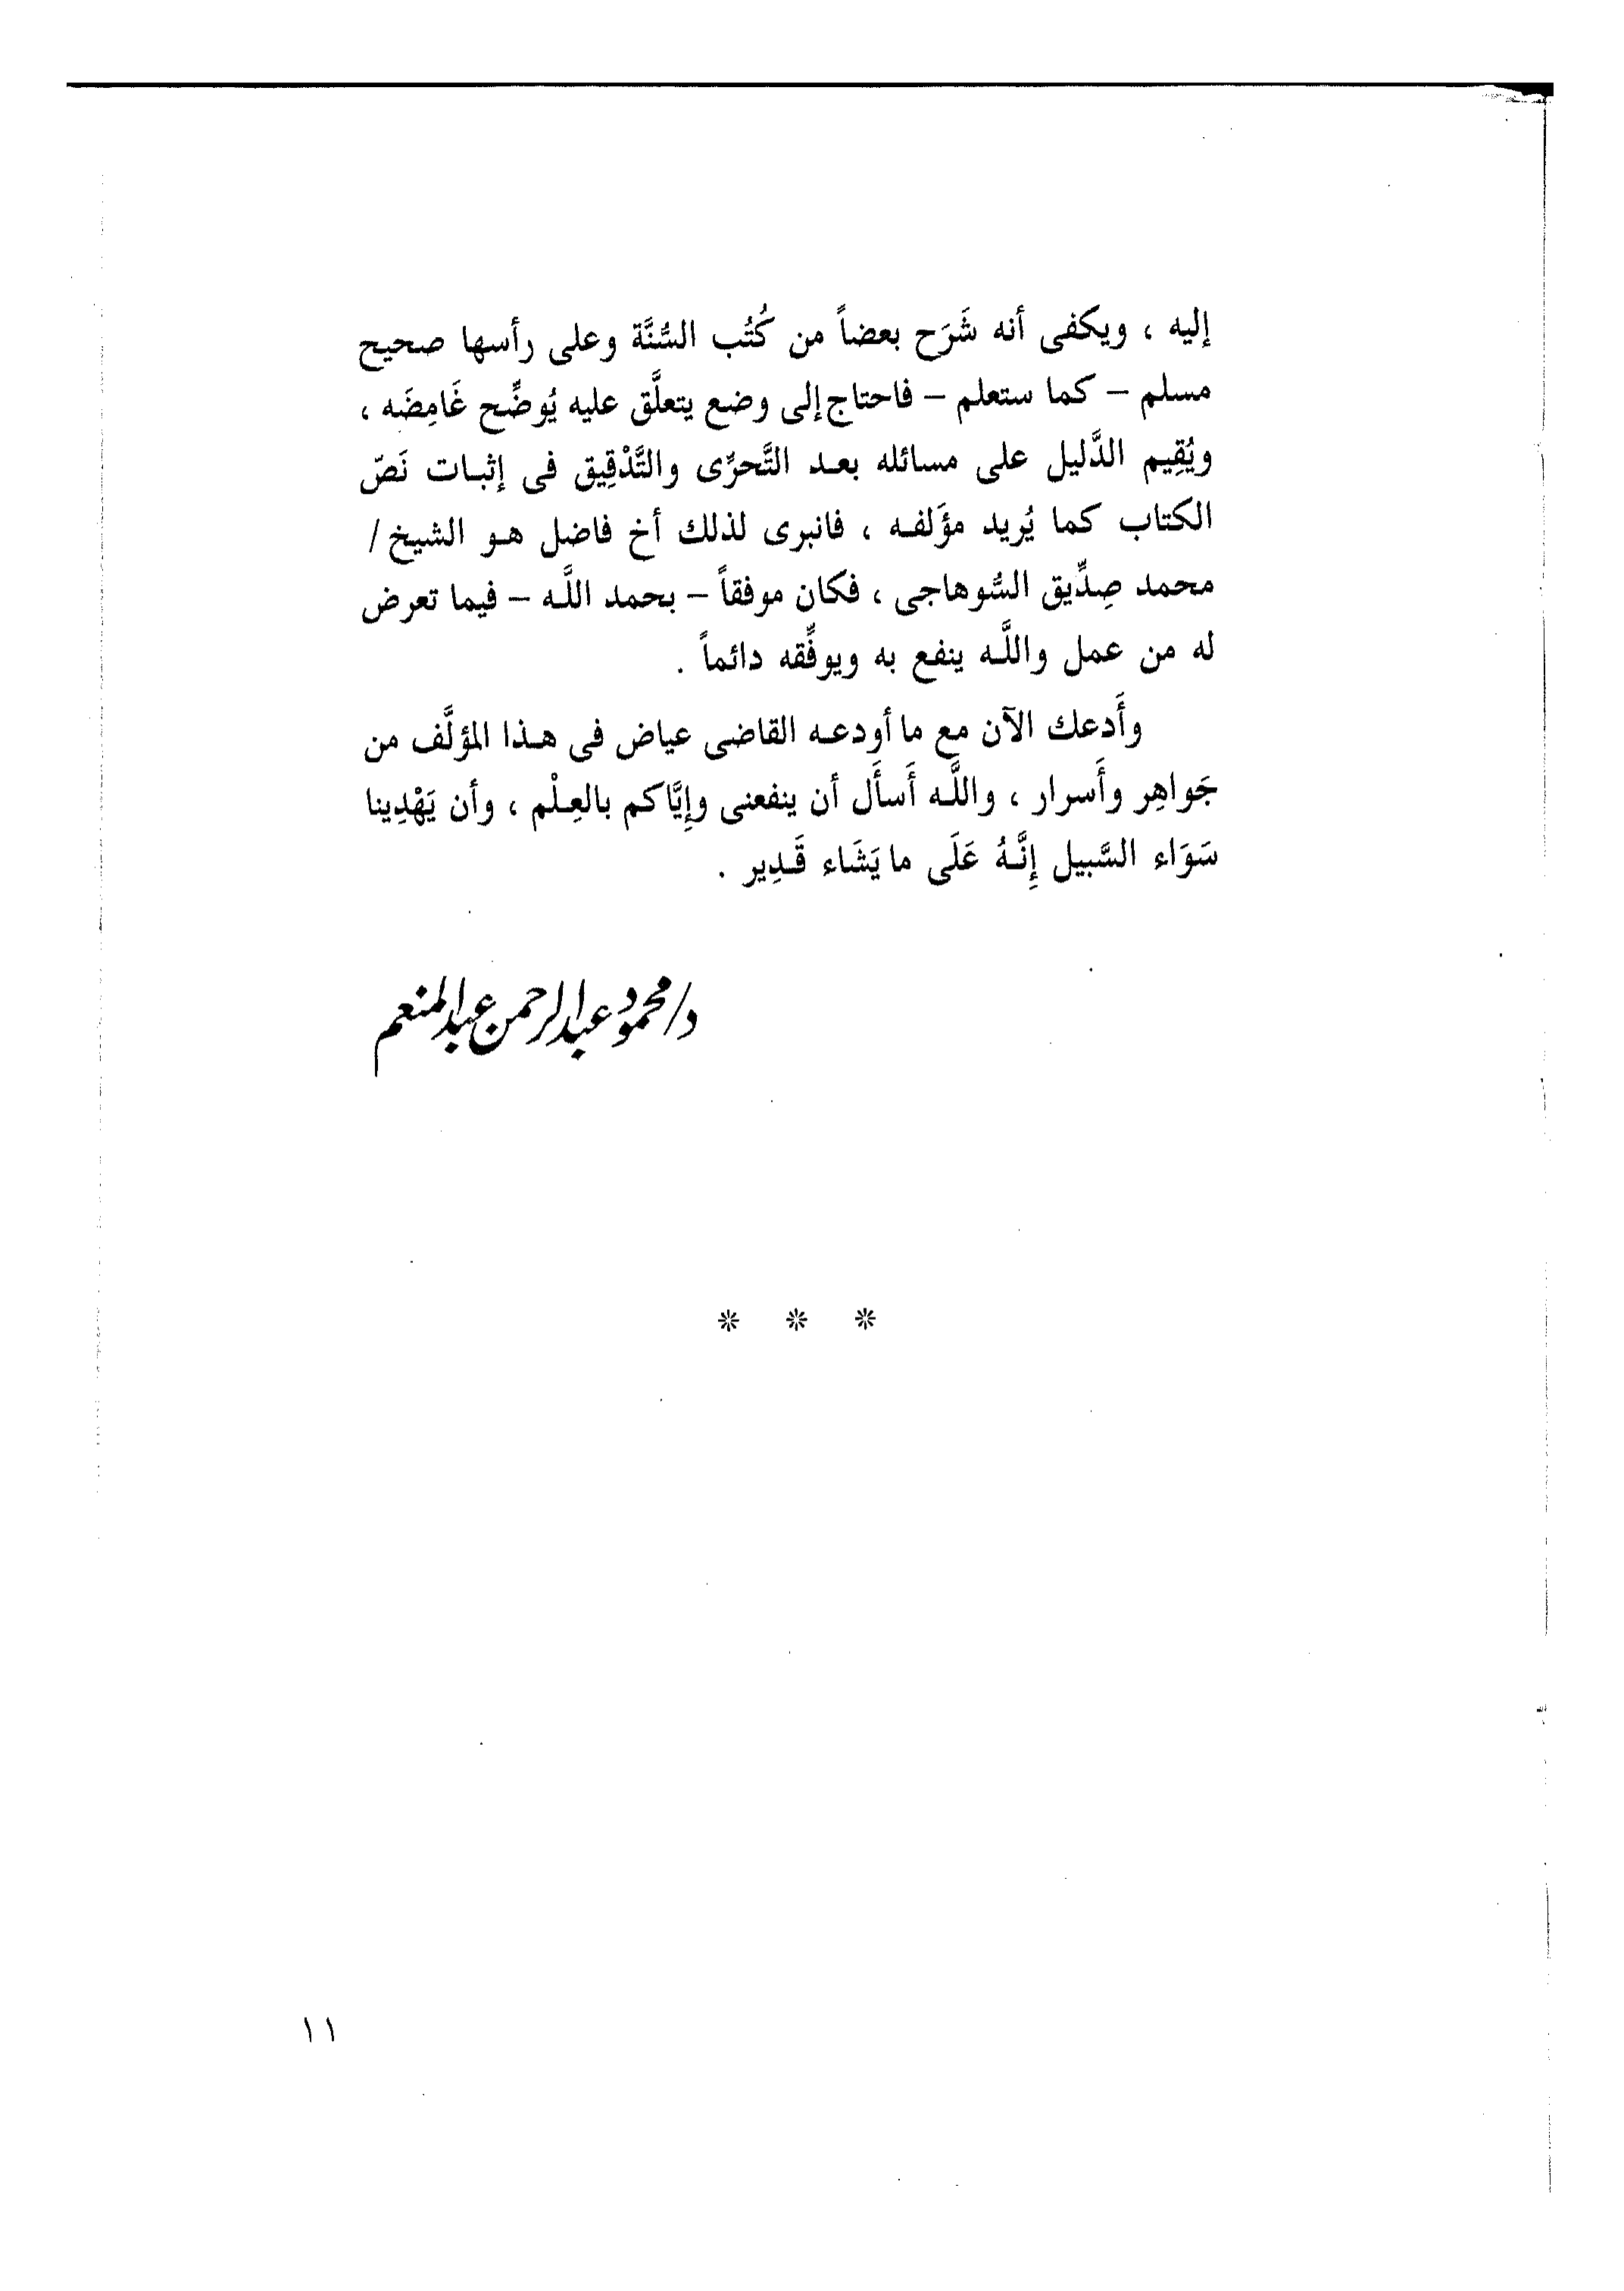 إليه ، ويكفى أنه شَرَح بعضاً من كُتُب السُّنَّة وعلى رأسها صحيح
مسلم – كما ستعلم – فاحتاج إلى وضع يتعلَّق عليه يُوضِّح غَامِضَه ،
ويُقِيم الدَّليل على مسائله بعد التَّحرِّى والتَّدْقِيق فى إثبات نَصّ
الكتاب كما يُريد مؤَلفه ، فانبرى لذلك أخ فاضل هو الشيخ /
محمد صِدِّيق السُّوهاجى ، فكان موفقاً – بحمد اللَّه – فيما تعرض
له من عمل واللَّه ينفع به ويوفِّقه دائماً .
وأَدعك الآن مع ما أودعه القاضى عياض فى هذا المؤلَّف من
جَواهِر وأَسرار ، واللَّه أَسأَل أن ينفعنى وإِيَّاكم بالعِلْم ، وأن يَهْدِينا
سَوَاء السَّبيل إِنَّهُ عَلَى ما يَشَاء قَدِير .
د/ محمود عبد الرحمن عبد المنعم
* * *
١١